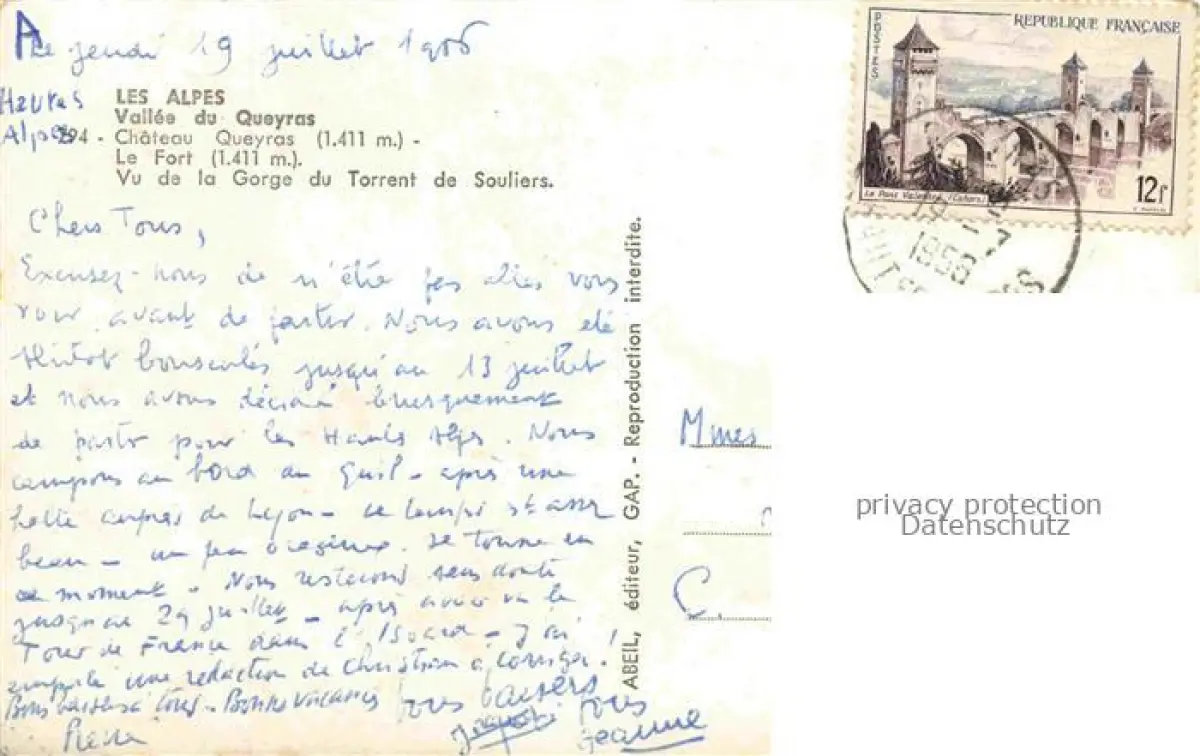 A
Le jeudi 19 juillet 1956
Hautes
Alpes
LES ALPES
Vallée du Queyras
294 - Château Queyras (1.411 m.) -
Le Fort (1.411 m.).
Vu de la Gorge du Torrent de Souliers.
Chers Tous,
Excusez-nous de n'être pas allés vous
voir avant de partir. Nous avons été
plutôt bousculés jusqu'au 13 juillet
et nous avons décidé brusquement
de partir pour les Hautes Alpes. Nous
campons au bord du Guil - après une
halte auprès de Lyon - Le temps est assez
beau - un peu orageux. Il tonne en
ce moment - Nous resterons sans doute
jusqu'au 29 juillet - après avoir vu le
Tour de France dans l'Isoard - J'ai
emporté une rédaction de Christian à corriger !
Bons baisers à tous - Bonnes vacances
bons baisers
à tous
Jeanne
ABEIL, éditeur, GAP. - Reproduction interdite.
POSTES
REPUBLIQUE FRANÇAISE
Le Pont Valentré (Cahors)
12f
1956
Mmes
C.
privacy protection
Datenschutz